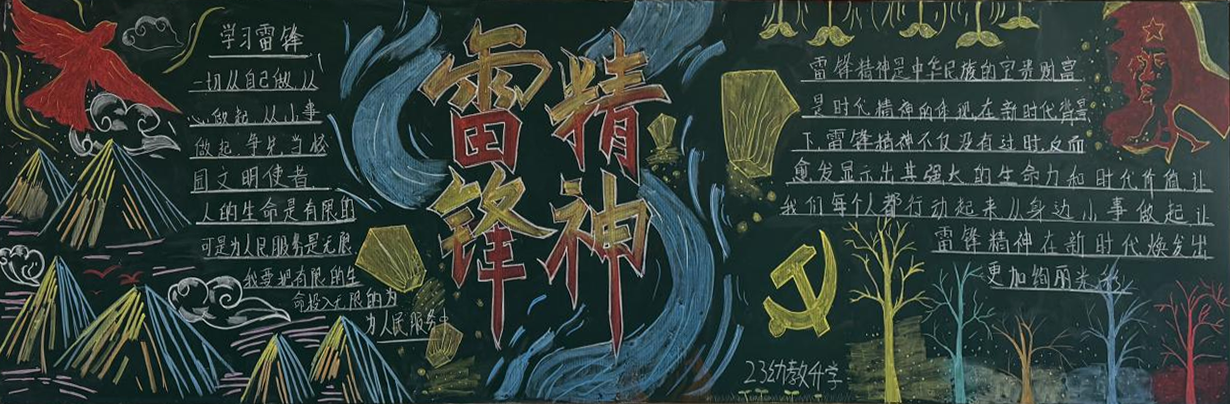 学习雷锋
一切从自己做,从
心做起,从小事
做起,争先当校
园文明使者
人的生命是有限的
可是为人民服务是无限
我要把有限的生
命投入无限的为
为人民服务中
雷锋
精神
雷锋精神是中华民族的宝贵财富
是时代精神的体现,在新时代背景
下,雷锋精神不仅没有过时,反而
愈发显示出其强大的生命力和时代价值,让
我们每个人都行动起来从身边小事做起让
雷锋精神在新时代焕发出
更加绚丽光彩
23幼教升学